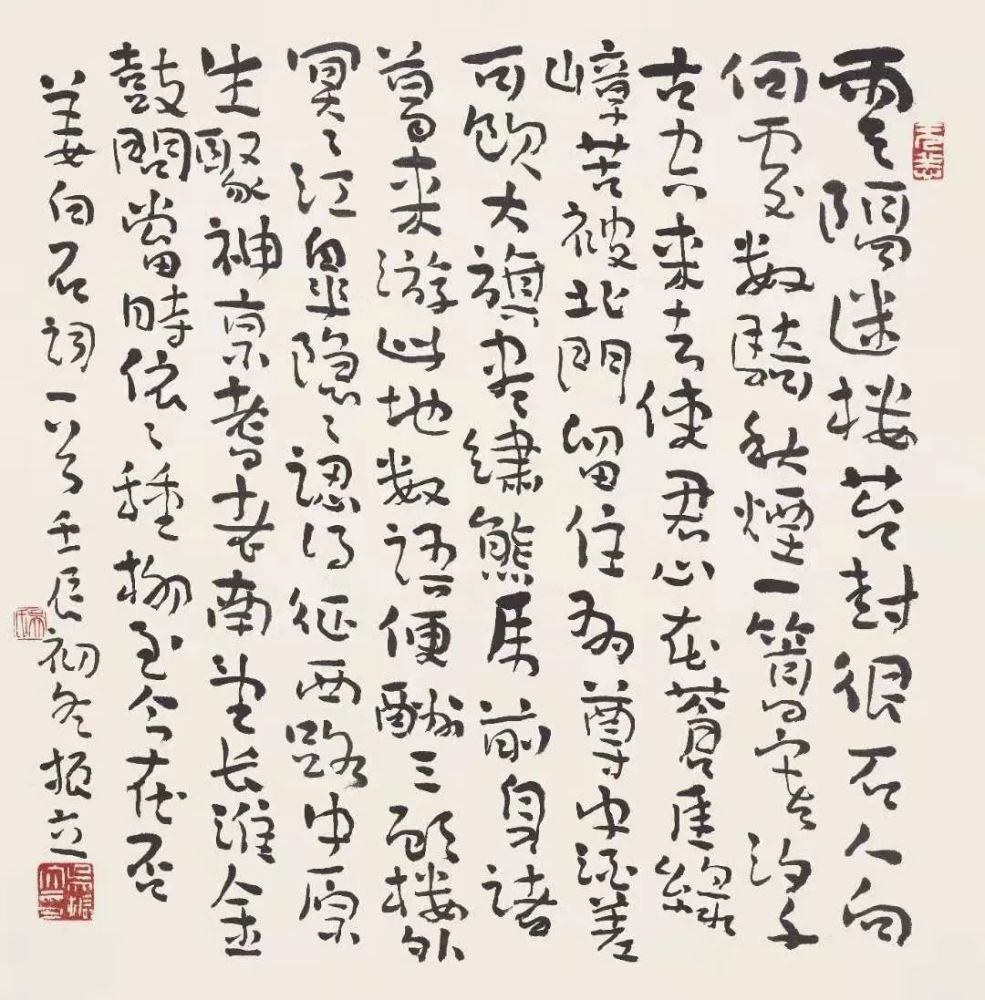 雲隔迷楼苔封很石人向
何處数騎秋煙一篙寒汐千
古空来去使君心在蒼厓緑
嶂苦被北門留住有尊中酒差
可飲大旗尽繡熊虎前身諸
葛来游此地数語便酬三顧楼外
冥々江皋隐々認得征西路中原
生聚神京耆老南望长淮金
鼓問當時依々種柳至今在否
姜白石詞一首壬辰初冬振立